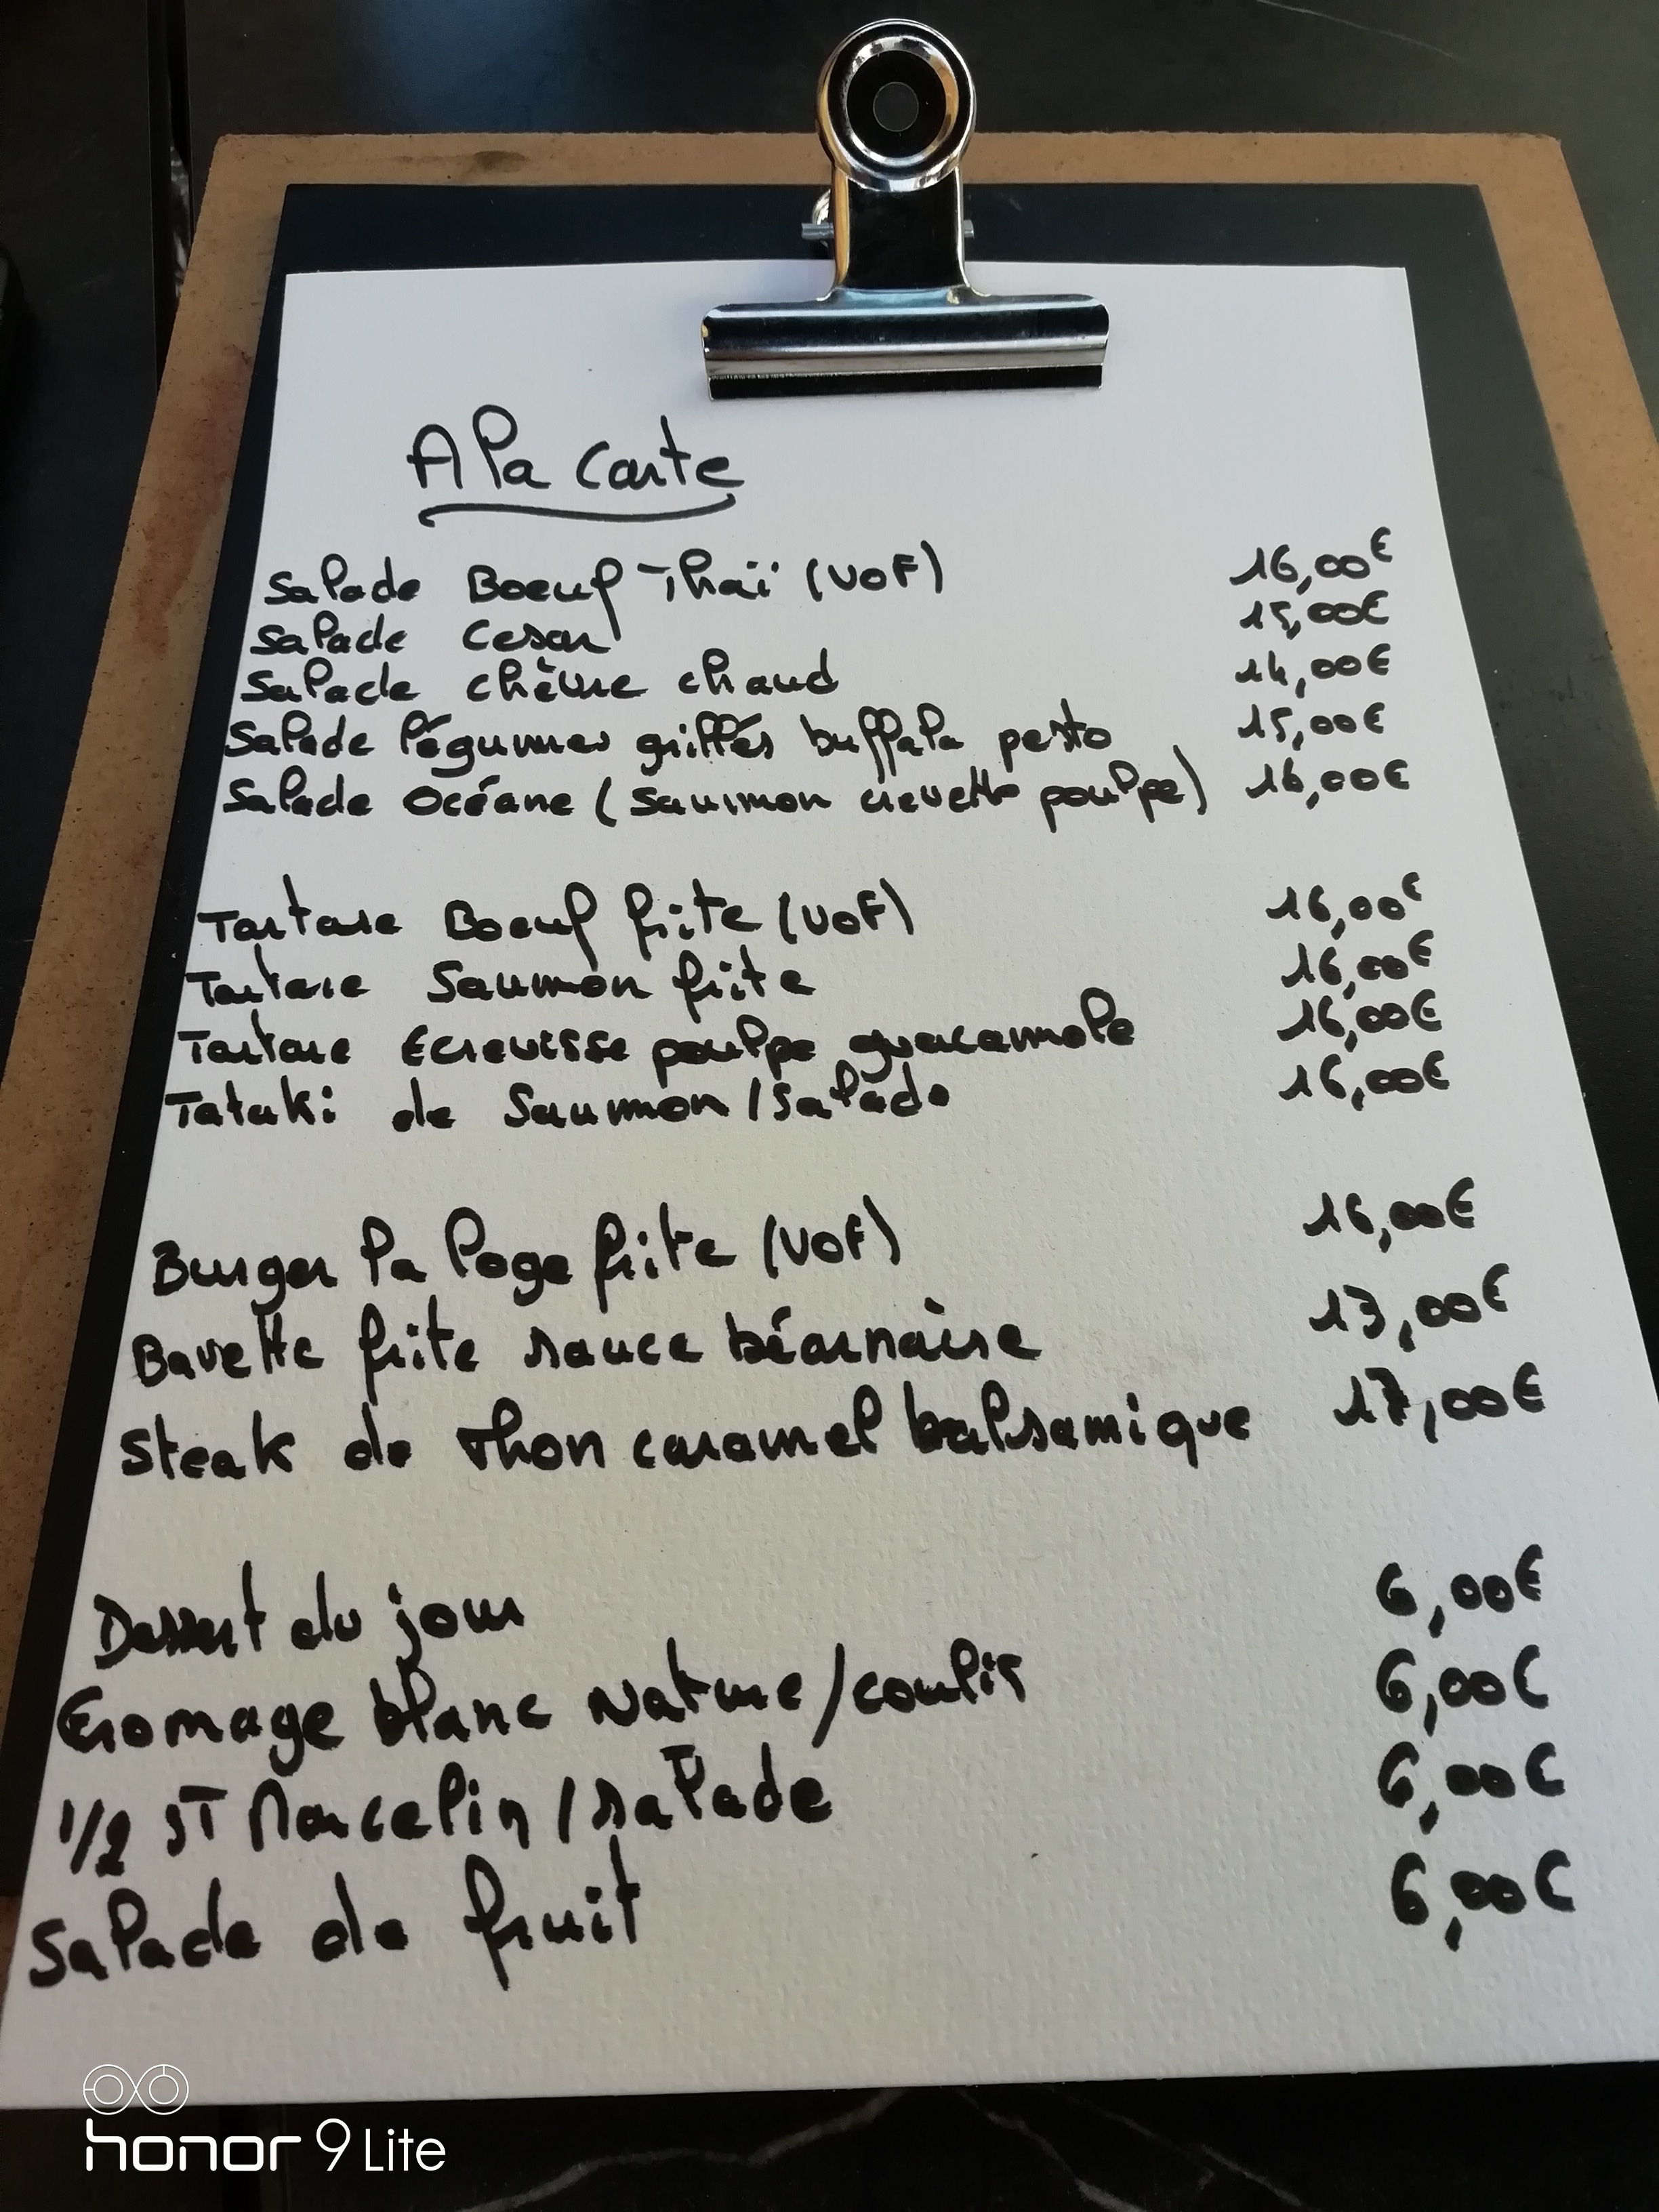 A la carte
Salade Boeuf Thaï (VOF) 16,00€
Salade Cesar 15,00€
Salade chèvre chaud 14,00€
Salade légumes grillés buffala pesto 15,00€
Salade Océane (saumon crevette poulpe) 16,00€
Tartare Boeuf frite (VOF) 16,00€
Tartare Saumon frite 16,00€
Tartare Ecrevisse poulpe guacamole 16,00€
Tataki de Saumon / Salade 16,00€
Burger la loge frite (VOF) 16,00€
Bavette frite sauce béarnaise 13,00€
Steak de thon caramel balsamique 17,00€
Dessert du jour 6,00€
Fromage blanc Nature/coulis 6,00€
1/2 ST Marcelin / salade 6,00€
Salade de fruit 6,00€
honor 9 Lite